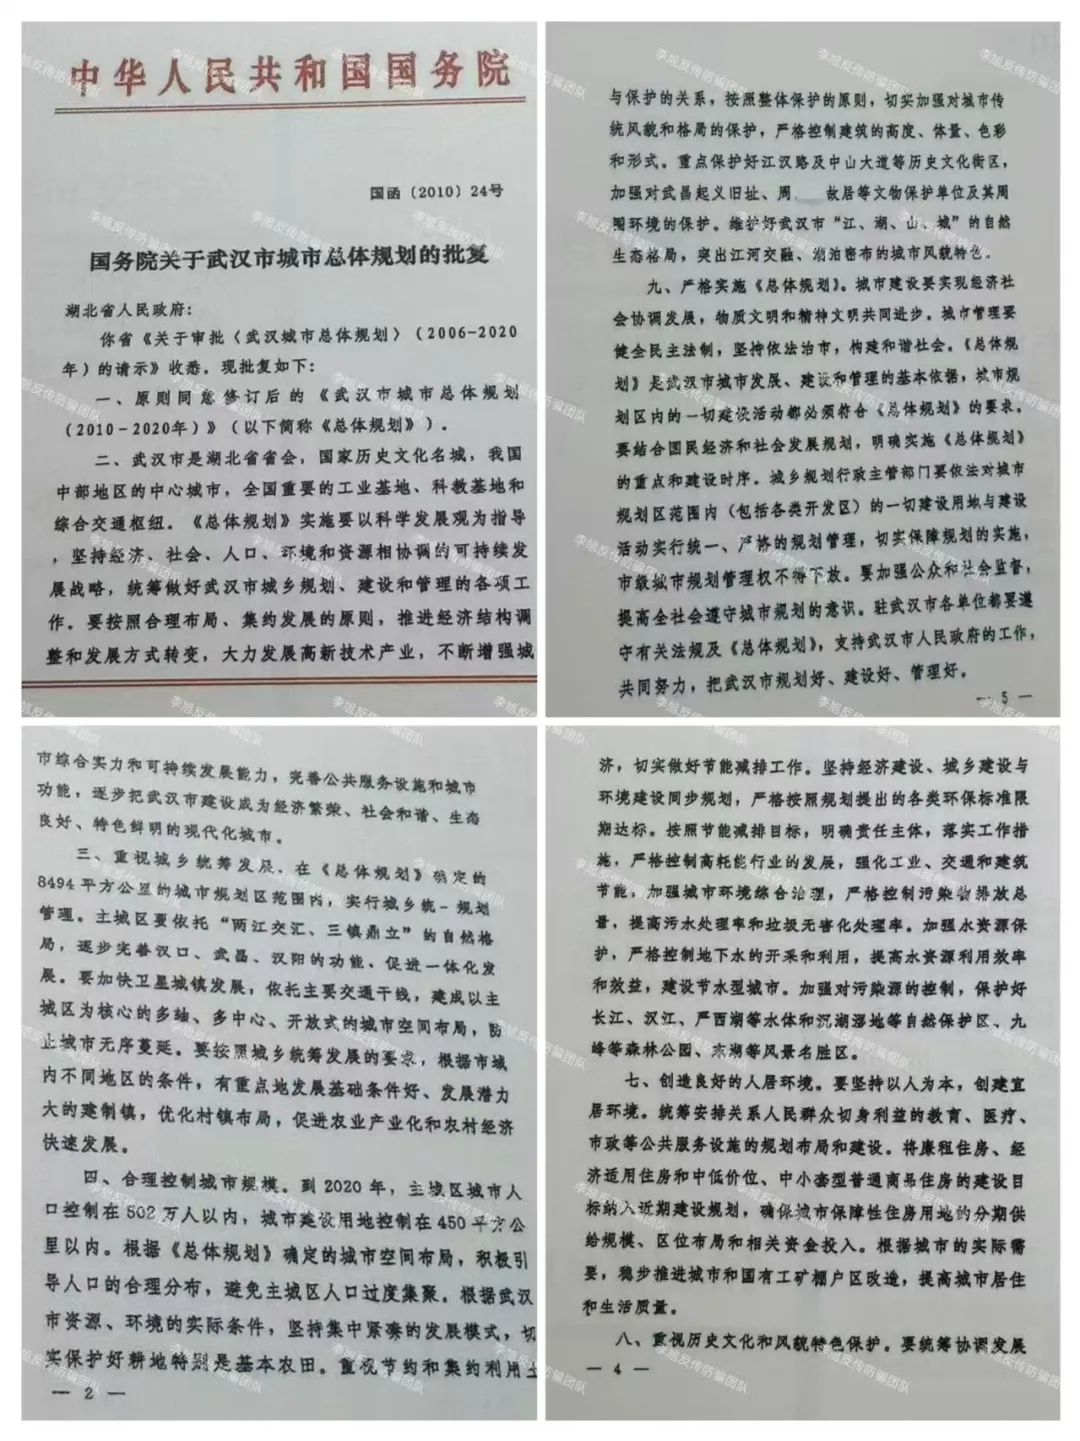 中华人民共和国国务院
国函〔2010〕24号
国务院关于武汉市城市总体规划的批复
湖北省人民政府：
你省《关于审批〈武汉城市总体规划〉（2006-2020
年）的请示》收悉。现批复如下：
一、原则同意修订后的《武汉市城市总体规划
（2010－2020年）》（以下简称《总体规划》）。
二、武汉市是湖北省省会，国家历史文化名城，我国
中部地区的中心城市，全国重要的工业基地、科教基地和
综合交通枢纽。《总体规划》实施要以科学发展观为指导
，坚持经济、社会、人口、环境和资源相协调的可持续发
展战略，统筹做好武汉市城乡规划、建设和管理的各项工
作。要按照合理布局、集约发展的原则，推进经济结构调
整和发展方式转变，大力发展高新技术产业，不断增强城
与保护的关系，按照整体保护的原则，切实加强对城市传
统风貌和格局的保护，严格控制建筑的高度、体量、色彩
和形式。重点保护好江汉路及中山大道等历史文化街区，
加强对武昌起义旧址、周 故居等文物保护单位及其周
围环境的保护。维护好武汉市“江、湖、山、城”的自然
生态格局，突出江河交融、湖泊密布的城市风貌特色。
九、严格实施《总体规划》。城市建设要实现经济社
会协调发展，物质文明和精神文明共同进步。城市管理要
健全民主法制，坚持依法治市，构建和谐社会。《总体规
划》是武汉市城市发展、建设和管理的基本依据，城市规
划区内的一切建设活动都必须符合《总体规划》的要求。
要结合国民经济和社会发展规划，明确实施《总体规划》
的重点和建设时序。城乡规划行政主管部门要依法对城市
规划区范围内（包括各类开发区）的一切建设用地与建设
活动实行统一、严格的规划管理，切实保障规划的实施，
市级城市规划管理权不得下放。要加强公众和社会监督，
提高全社会遵守城市规划的意识。驻武汉市各单位都要遵
守有关法规及《总体规划》，支持武汉市人民政府的工作，
共同努力，把武汉市规划好、建设好、管理好。
— 5 —
市综合实力和可持续发展能力，完善公共服务设施和城市
功能，逐步把武汉市建设成为经济繁荣、社会和谐、生态
良好、特色鲜明的现代化城市。
三、重视城乡统筹发展。在《总体规划》确定的
8494平方公里的城市规划区范围内，实行城乡统一规划
管理。主城区要依托“两江交汇、三镇鼎立”的自然格
局，逐步完善汉口、武昌、汉阳的功能，促进一体化发
展。要加快卫星城镇发展，依托主要交通干线，建成以主
城区为核心的多轴、多中心、开放式的城市空间布局，防
止城市无序蔓延。要按照城乡统筹发展的要求，根据市域
内不同地区的条件，有重点地发展基础条件好、发展潜力
大的建制镇，优化村镇布局，促进农业产业化和农村经济
快速发展。
四、合理控制城市规模。到2020年，主城区城市人
口控制在502万人以内，城市建设用地控制在450平方公
里以内。根据《总体规划》确定的城市空间布局，积极引
导人口的合理分布，避免主城区人口过度集聚。根据武汉
市资源、环境的实际条件，坚持集中紧凑的发展模式，切
实保护好耕地特别是基本农田。重视节约和集约利用土
— 2 —
济，切实做好节能减排工作。坚持经济建设、城乡建设与
环境建设同步规划，严格按照规划提出的各类环保标准限
期达标。按照节能减排目标，明确责任主体，落实工作措
施，严格控制高耗能行业的发展，强化工业、交通和建筑
节能，加强城市环境综合治理，严格控制污染物排放总
量，提高污水处理率和垃圾无害化处理率。加强水资源保
护，严格控制地下水的开采和利用，提高水资源利用效率
和效益，建设节水型城市。加强对污染源的控制，保护好
长江、汉江、严西湖等水体和沉湖湿地等自然保护区、九
峰等森林公园、东湖等风景名胜区。
七、创造良好的人居环境。要坚持以人为本，创建宜
居环境。统筹安排关系人民群众切身利益的教育、医疗、
市政等公共服务设施的规划布局和建设。将廉租住房、经
济适用住房和中低价位、中小套型普通商品住房的建设目
标纳入近期建设规划，确保城市保障性住房用地的分期供
给规模、区位布局和相关资金投入。根据城市的实际需
要，稳步推进城市和国有工矿棚户区改造，提高城市居住
和生活质量。
八、重视历史文化和风貌特色保护。要统筹协调发展
— 4 —
李旭反传防骗团队